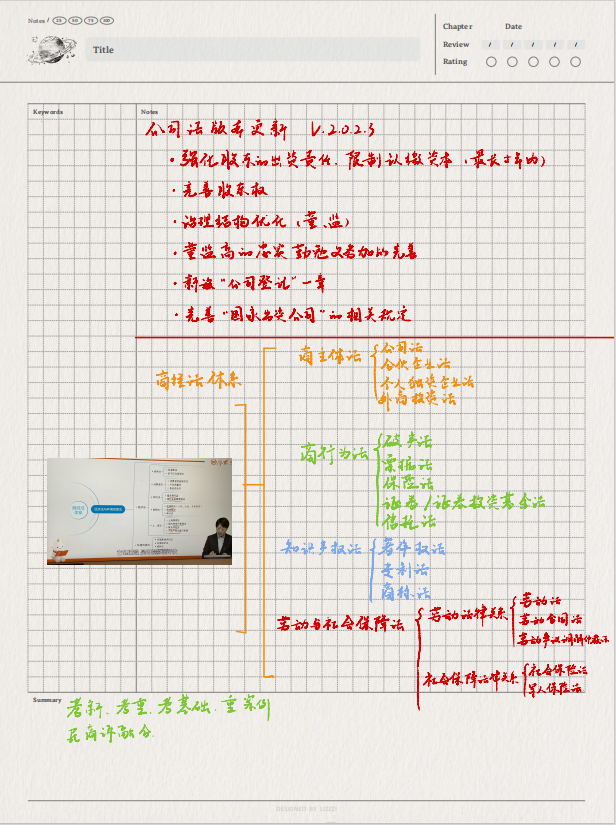 Notes / 25 50 75 100
Title
Chapter Date
Review / / / / /
Rating
Keywords
Notes
公司法版本更新 V.2.0.2.3
·强化股东的出资责任、限制认缴资本（最长5年内）
·完善股东权
·治理结构优化（董、监）
·董监高的忠实 勤勉义务加以完善
·新设“公司登记”一章
·完善“国家出资公司”的相关规定
商经法体系
商主体法
公司法
合伙企业法
个人独资企业法
外商投资法
商行为法
破产法
票据法
保险法
证券/证券投资基金法
信托法
知识产权法
著作权法
专利法
商标法
劳动与社会保障法
劳动法律关系
劳动法
劳动合同法
劳动争议调解仲裁法
社会保障法律关系
社会保险法
军人保险法
Summary
考新、考重、考基础、重案例
民商诉融合.
DESIGNED BY